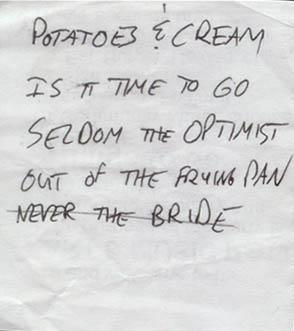 POTATOES & CREAM
IS IT TIME TO GO
SELDOM THE OPTIMIST
OUT OF THE FRYING PAN
NEVER THE BRIDE